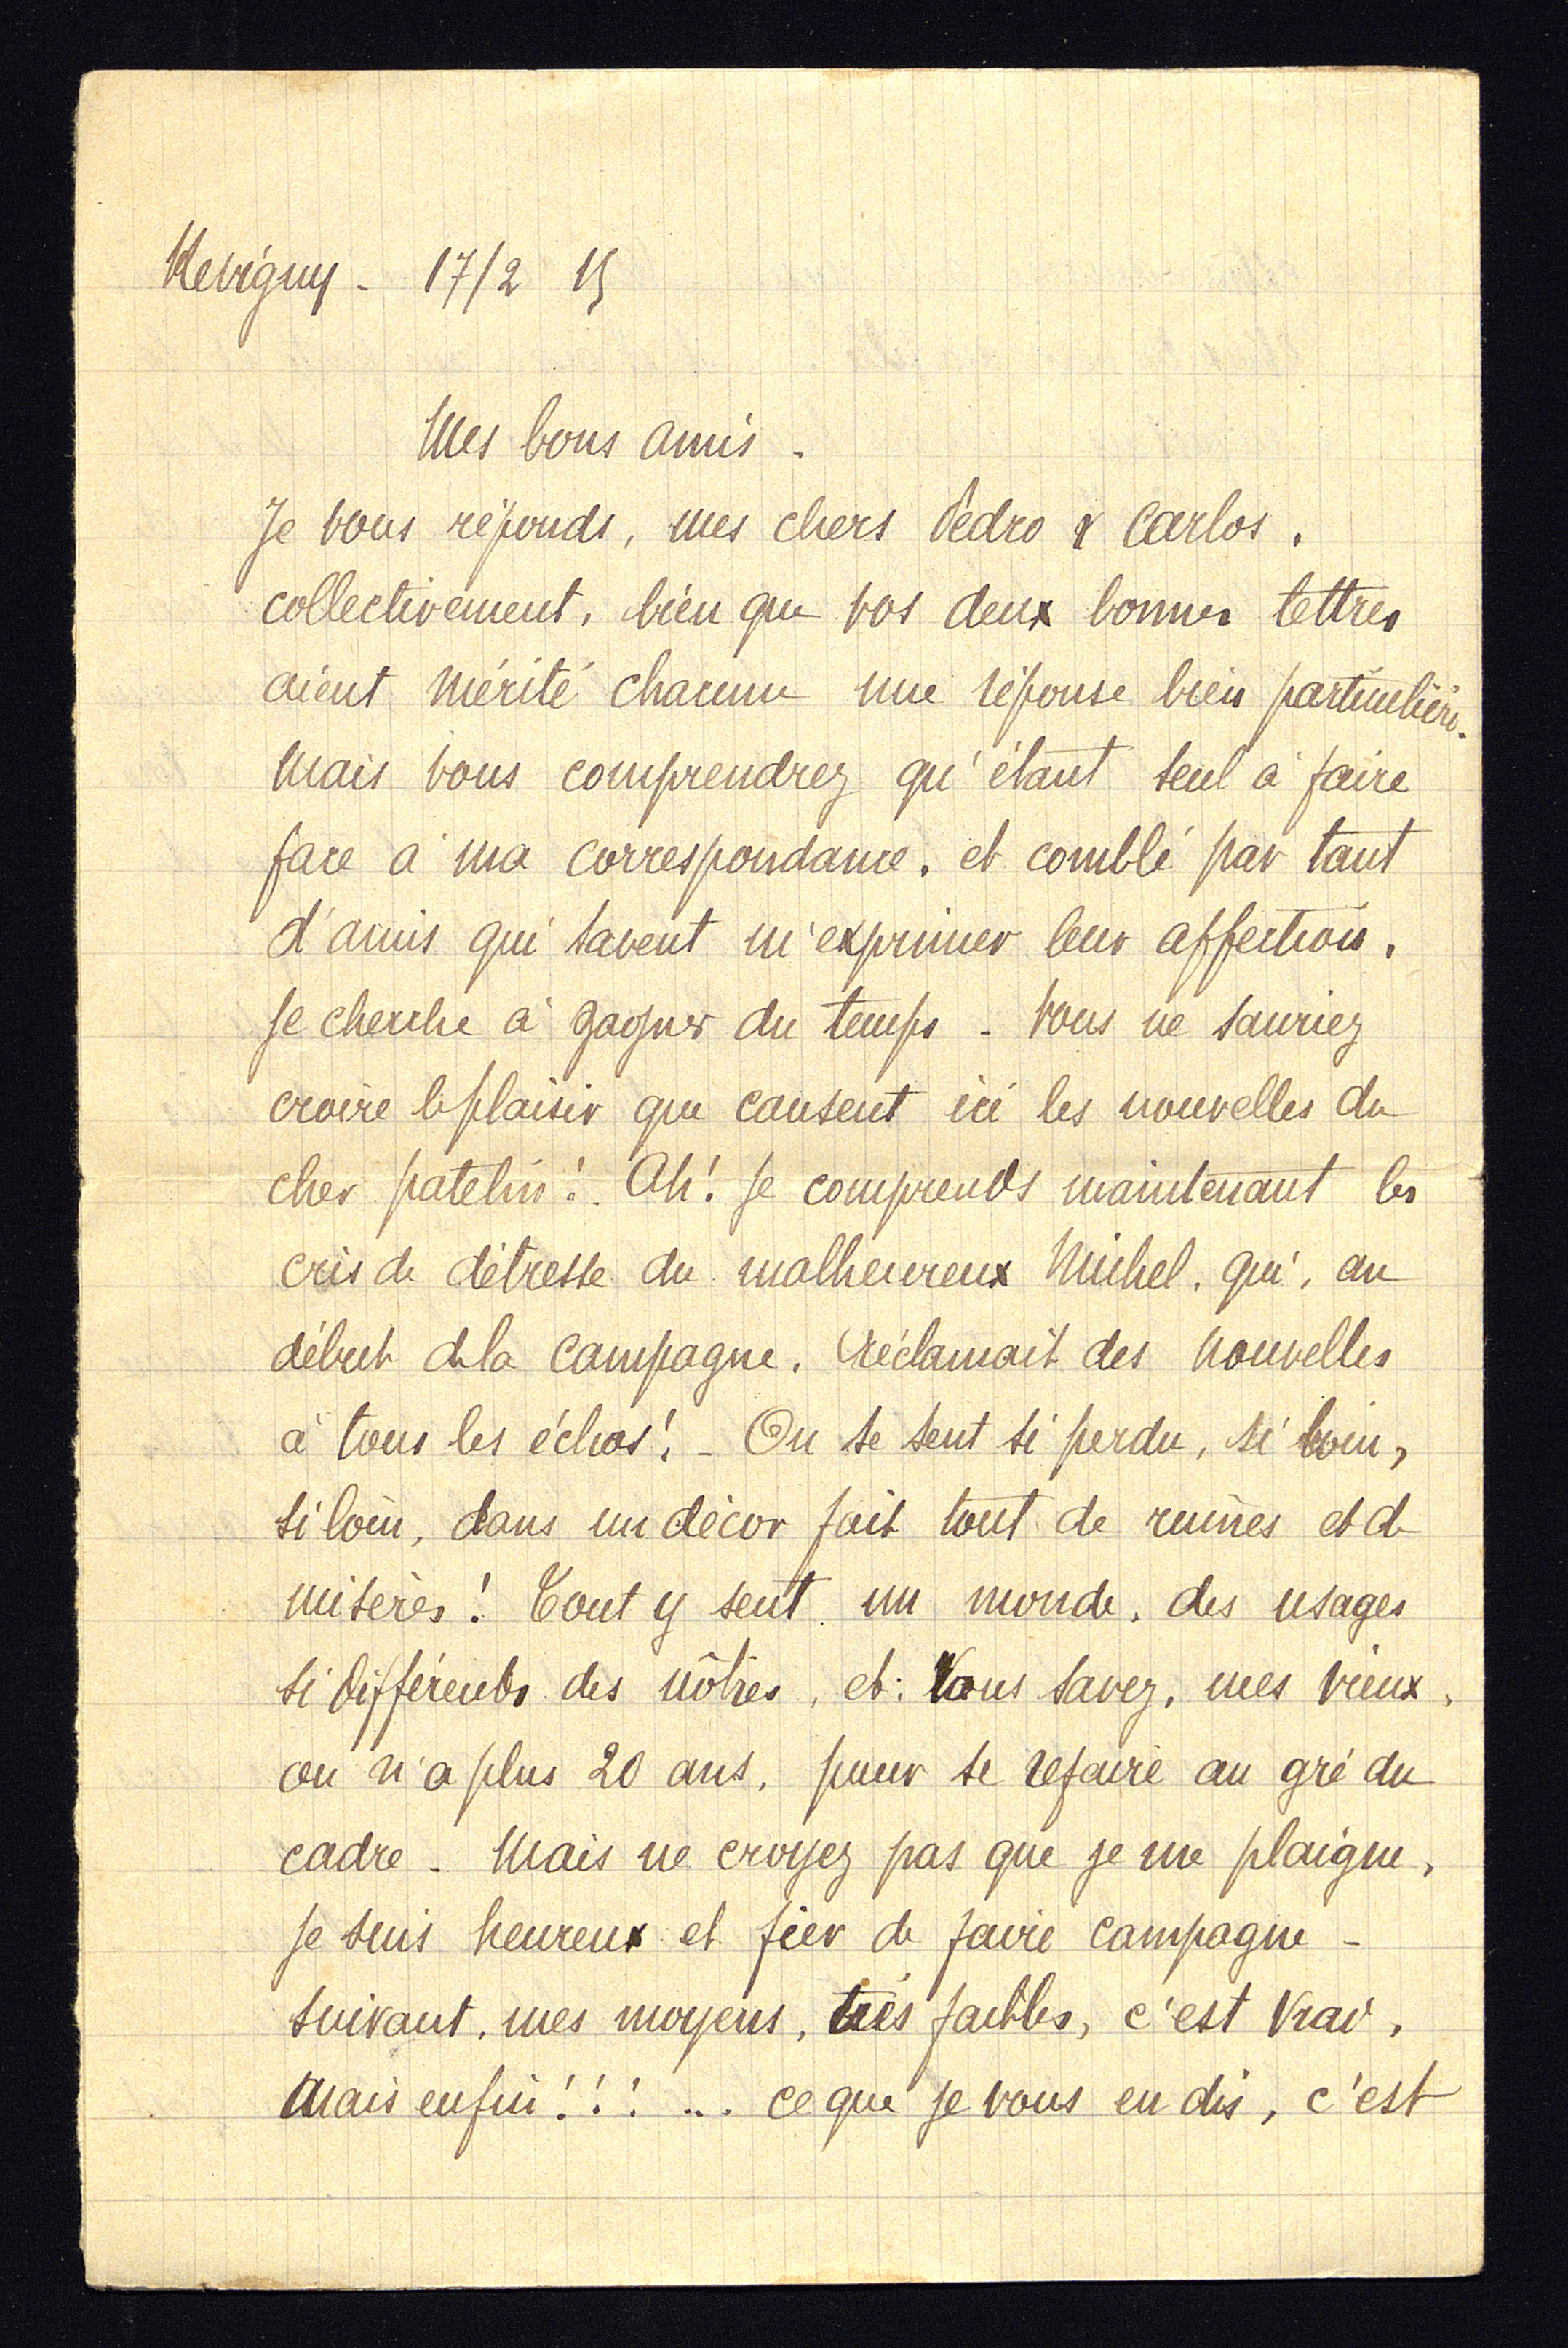 Revigny - 17/2 15
Mes bons amis -
Je vous réponds, mes chers Pedro & Carlos,
collectivement, bien que vos deux bonnes lettres
aient mérité chacune une réponse bien particulière.
Mais vous comprendrez qu'étant seul à faire
face à ma correspondance, et comblé par tant
d'amis qui savent m'exprimer leur affection,
je cherche à gagner du temps - Vous ne sauriez
croire le plaisir que causent ici les nouvelles du
cher patelin! Ah! je comprends maintenant les
cris de détresse du malheureux Michel, qui, au
début de la campagne, réclamait des nouvelles
à tous les échos! - On se sent si perdu, si loin,
si loin, dans un décor fait tout de ruines et de
misères! Tout y sent un monde, des usages
si différents des nôtres, et: Vous savez, mes vieux,
on n'a plus 20 ans, pour se refaire au gré du
cadre - Mais ne croyez pas que je me plaigne,
je suis heureux et fier de faire campagne -
suivant, mes moyens, très faibles, c'est vrai,
Mais enfin!!! ... ce que je vous en dis, c'est